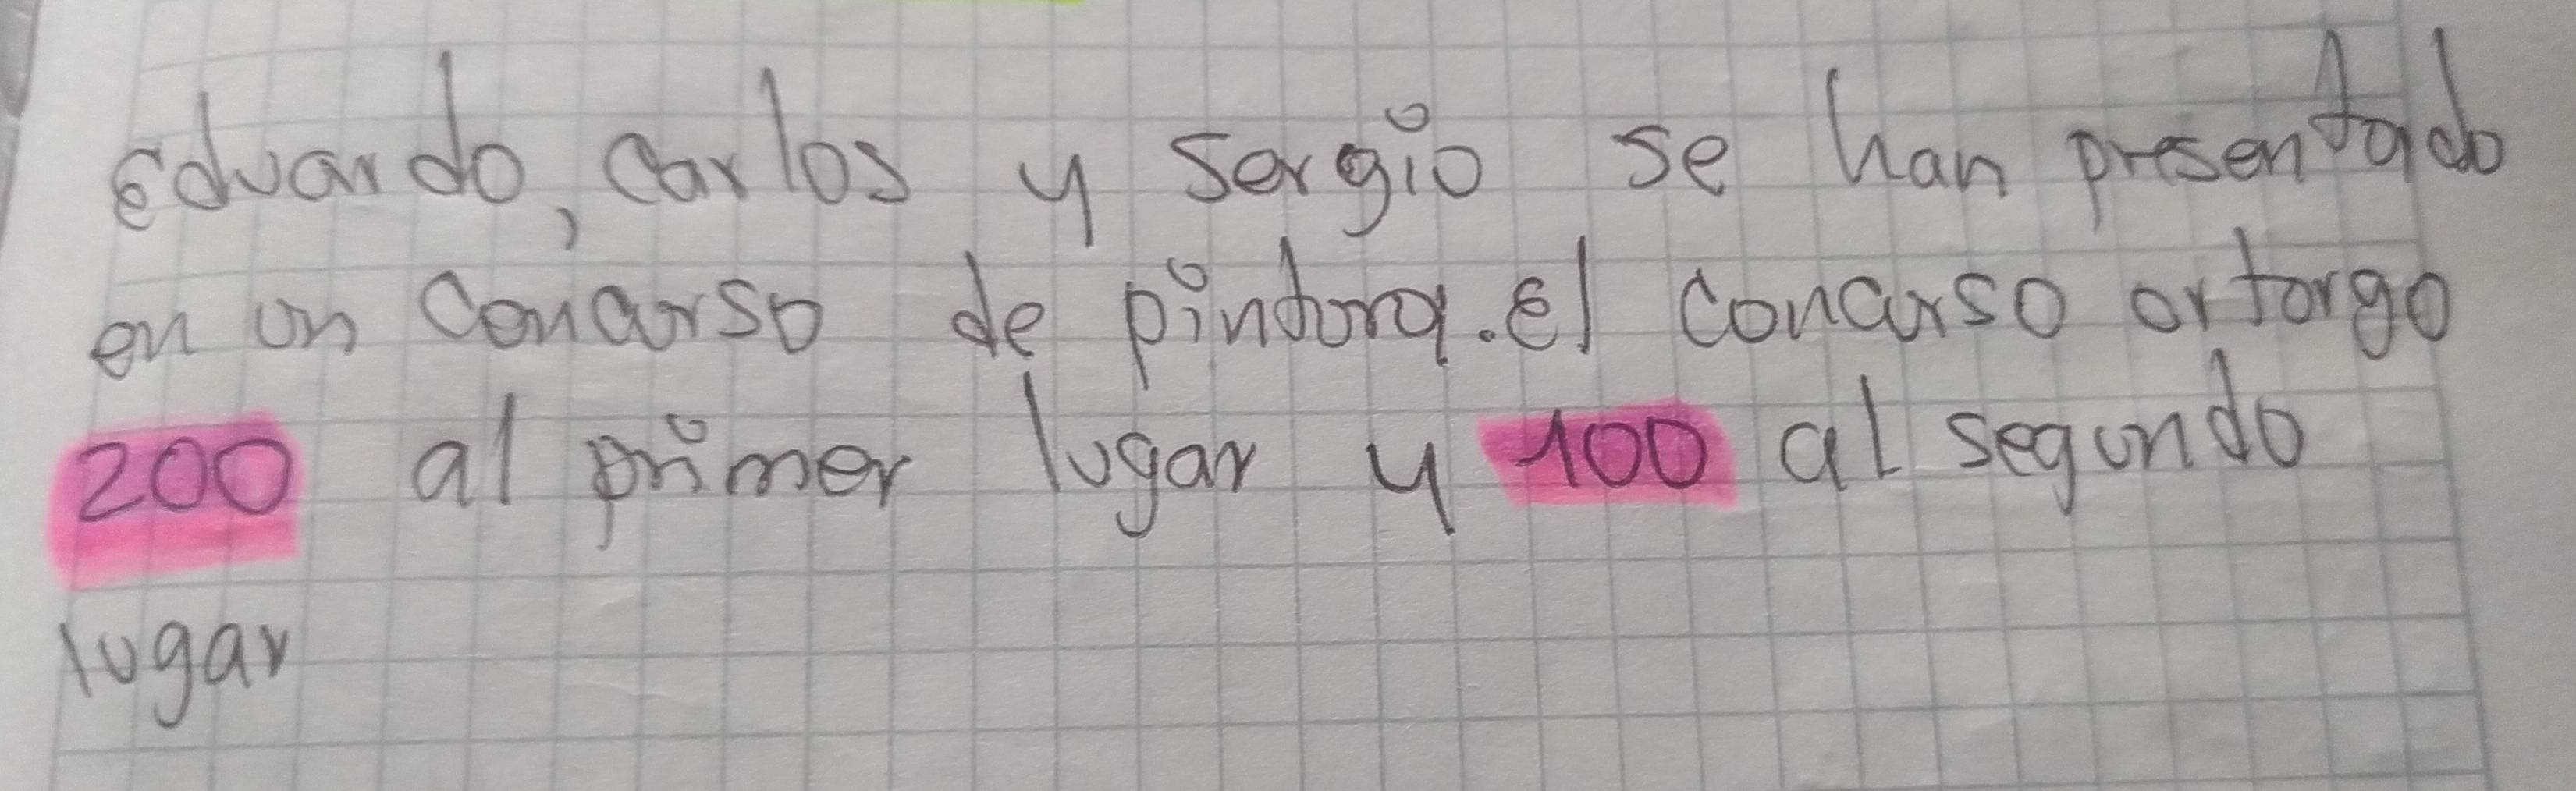 Eduardo, Carlos y Sergio se han presentado
en un concurso de pintura. el concurso ortorgo
200 al primer lugar y 100 al segundo
lugar